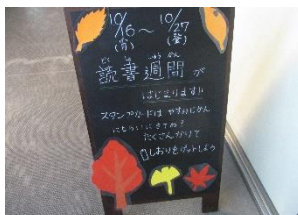 10/16～10/27
(月) (金)
どくしょしゅうかん
読書週間が
はじまります!!
スタンプカードは やすみじかん
にもらいにきてね?
たくさんかりて
しおりをゲットしよう